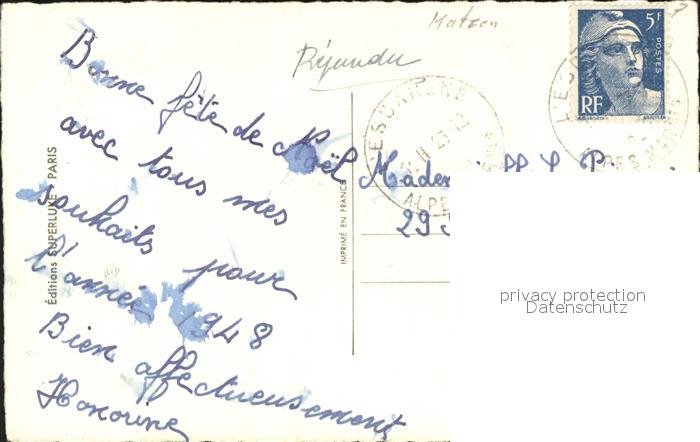 Katzen
Répondu
5F
POSTES
RF
L'ESCARENE
23 12
ALPES M
Bonne fête de Noël
avec tous mes
souhaits pour
l'année 1948
Bien affectueusement
Honorine
Éditions SUPERLUXE - PARIS
IMPRIMÉ EN FRANCE
29
privacy protection
Datenschutz